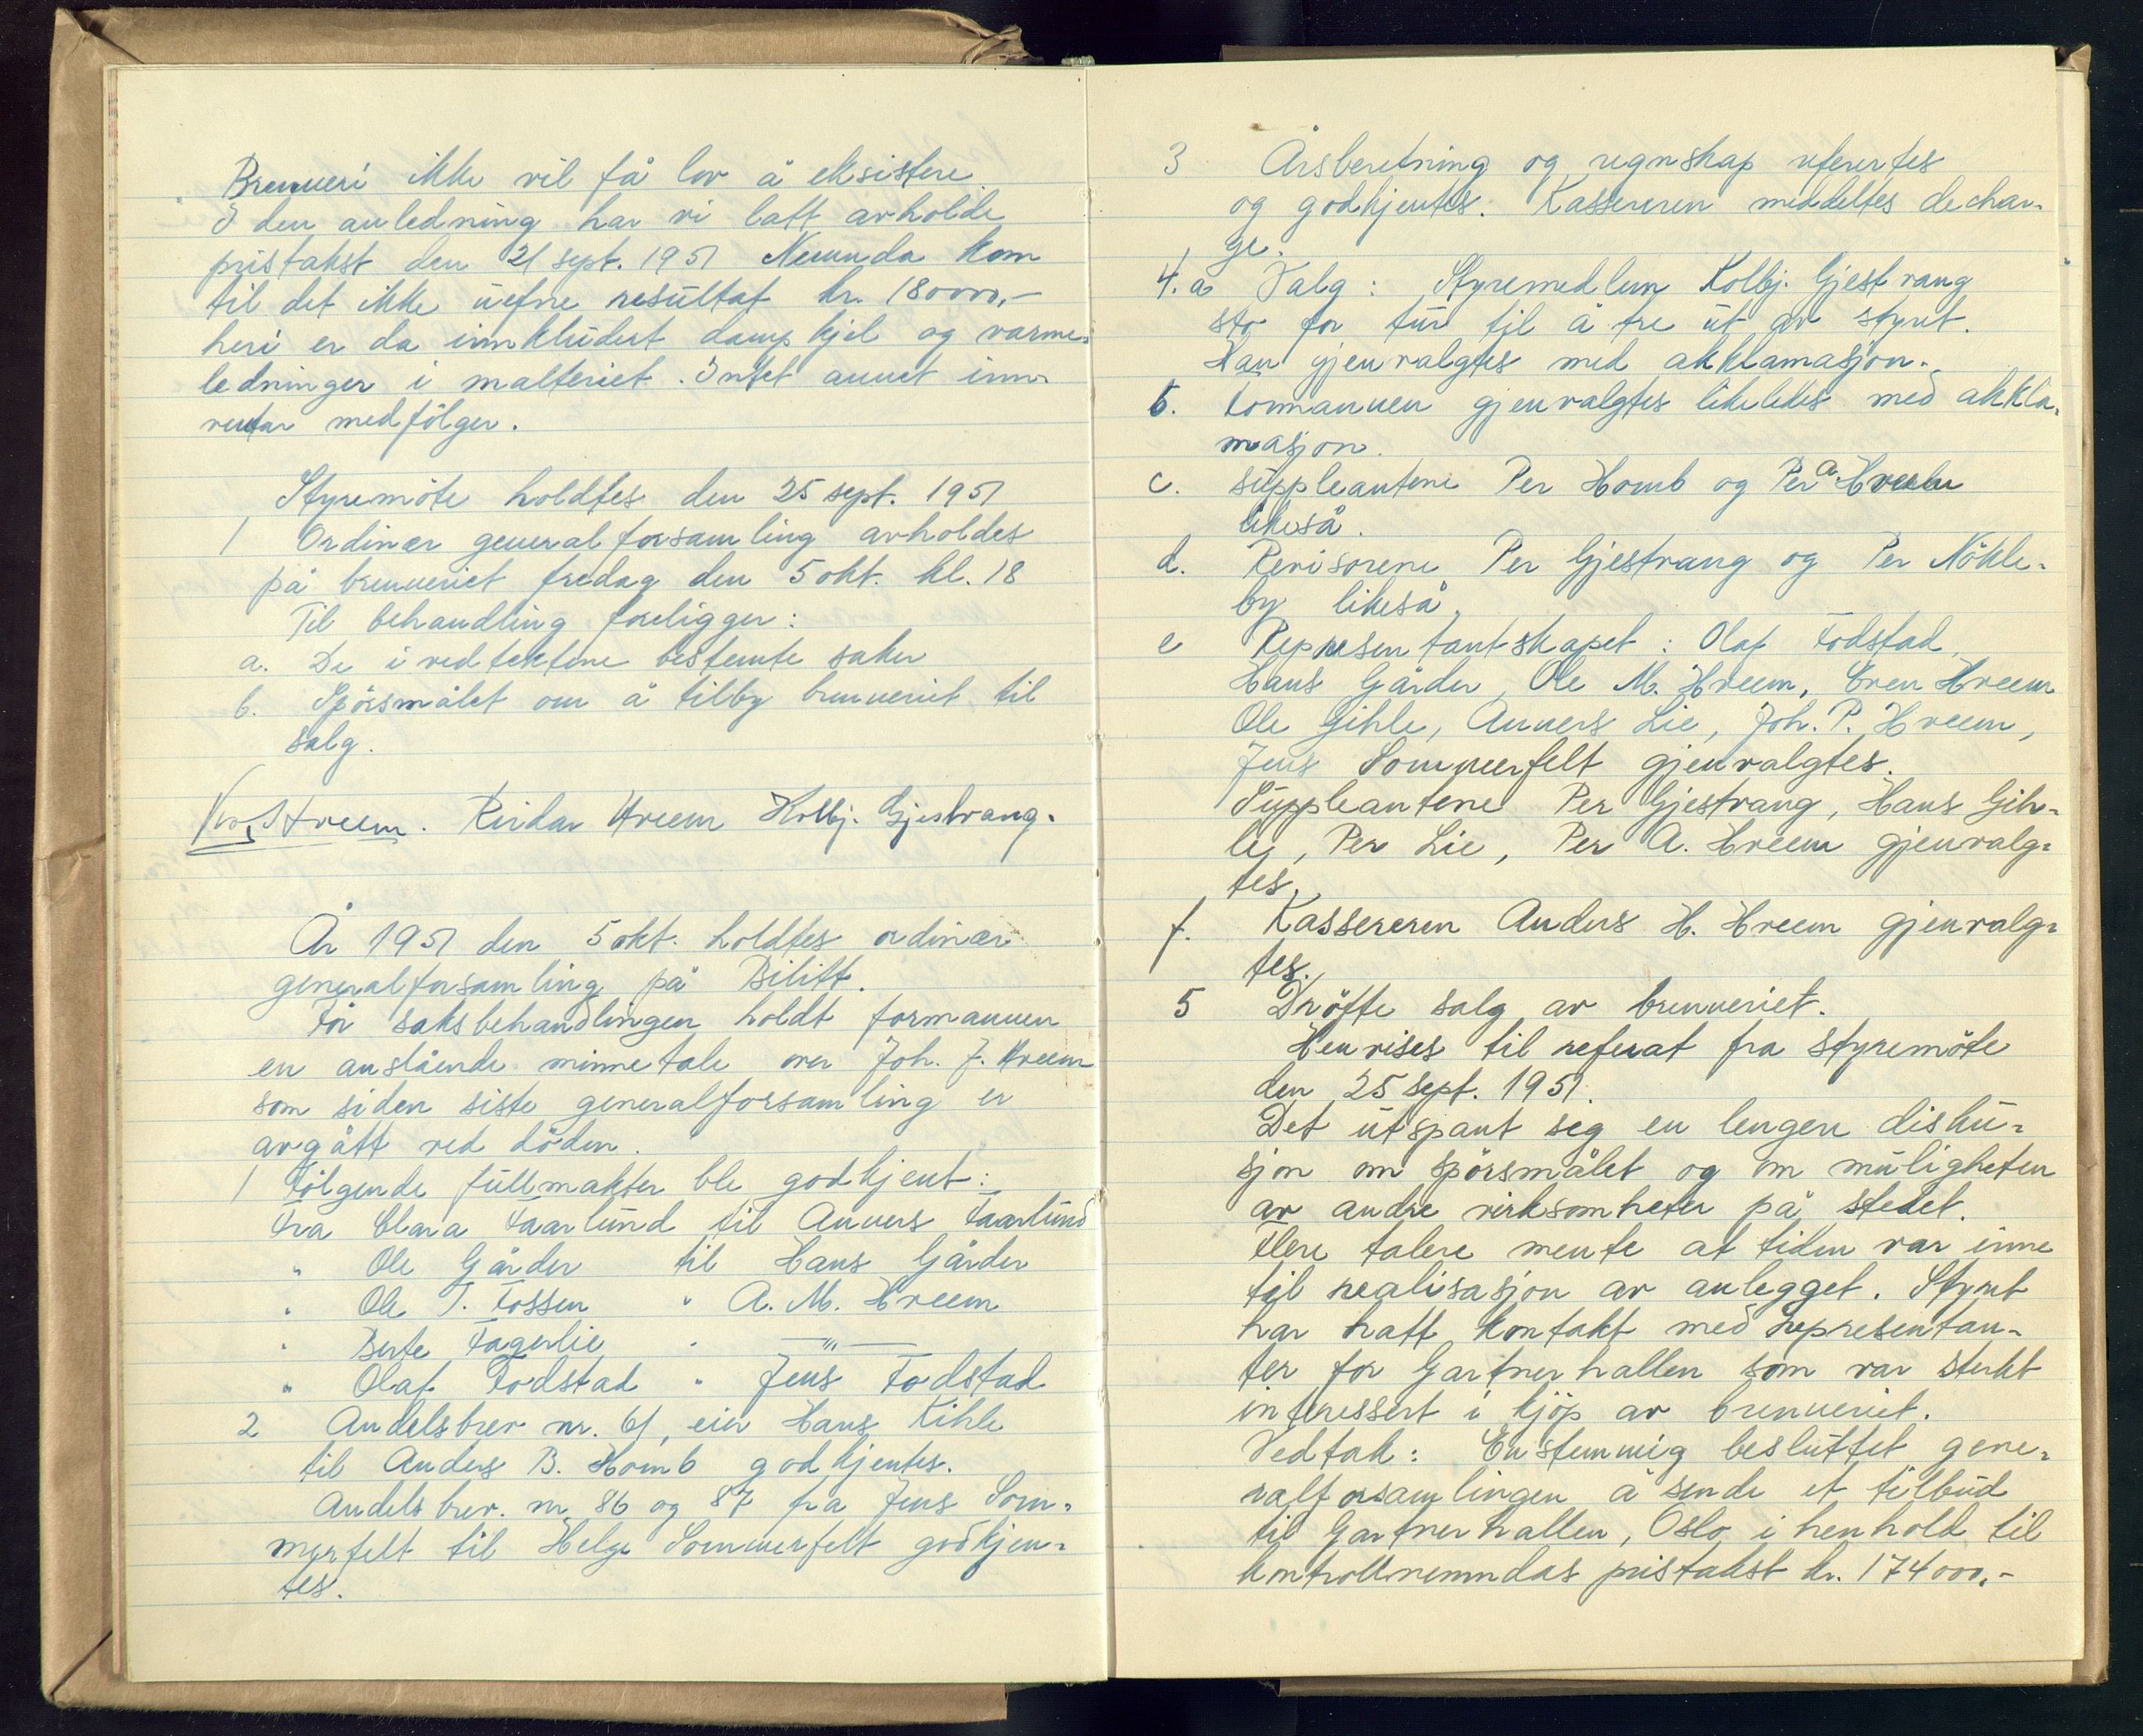 Brenneri ikke vil få lov å eksistere
I den anledning har vi latt avholde
pristakst den 21 sept. 1951 Nemnda kom
til det ikke uefne resultat kr. 180000,-
heri er da innkludert dampkjel og varme-
ledninger i malteriet. Intet annet inn-
ventar medfölger.
Styremöte holdtes den 25 sept. 1951
1 Ordinær generalforsamling avholdes
på brenneriet fredag den 5 okt. kl. 18
Til behandling foreligger:
a. De i vedtektene bestemte saker
b. Spörsmålet om å tilby brenneriet til
salg.
Hveem. Reidar Hveem Kolbj. Gjestvang.
År 1951 den 5 okt. holdtes ordinær
generalforsamling på Bilitt.
För saksbehandlingen holdt formannen
en anslående minnetale over Joh. J. Hveem
som siden siste generalforsamling er
avgått ved döden.
1 Fölgende fullmakter ble godkjent:
Fra Clara Faarlund til Anners Faarlund
" Ole Gårder til Hans Gårder
" Ole T. Fossen " A. M. Hveem
" Berte Fagerlie " —"—
" Olaf Fodstad " Jens Fodstad
2 Andelsbrev nr. 61, eier Hans Kihle
til Anders B. Homb godkjentes.
Andelsbrev. nr 86 og 87 fra Jens Som-
merfelt til Helge Sommerfelt godkjen-
tes.
3 Årsberetning og regnskap referertes
og godkjentes. Kassereren meddeltes dechar-
ge.
4. a Valg: Styremedlem Kolbj. Gjestvang
sto for tur til å tre ut av styret.
Han gjenvalgtes med akklamasjon.
b. Formannen gjenvalgtes likeledes med akkla-
masjon.
c. Suppleantene Per Homb og Per A Hveem
likeså.
d. Revisorene Per Gjestvang og Per Nökle-
by likeså.
e Representantskapet: Olaf Fodstad,
Hans Gårder, Ole M. Hveem, Even Hveem
Ole Gihle, Anners Lie, Joh. P. Hveem,
Jens Sommerfelt gjenvalgtes.
Suppleantene Per Gjestvang, Hans Gih-
le, Per Lie, Per A. Hveem gjenvalg-
tes.
f. Kassereren Anders H. Hveem gjenvalg-
tes.
5 Dröfte salg av brenneriet.
Henvises til referat fra styremöte
den 25 sept. 1951.
Det utspant seg en lengere disku-
sjon om spörsmålet og om muligheten
av andre virksomheter på stedet.
Flere talere mente at tiden var inne
til realisasjon av anlegget. Styret
har hatt kontakt med representan-
ter for Gartnerhallen som var sterkt
interessert i kjöp av brenneriet.
Vedtak: Enstemmig besluttet gene-
ralforsamlingen å sende et tilbud
til Gartnerhallen, Oslo i henhold til
kontrollnemndas pristakst kr. 174000,-